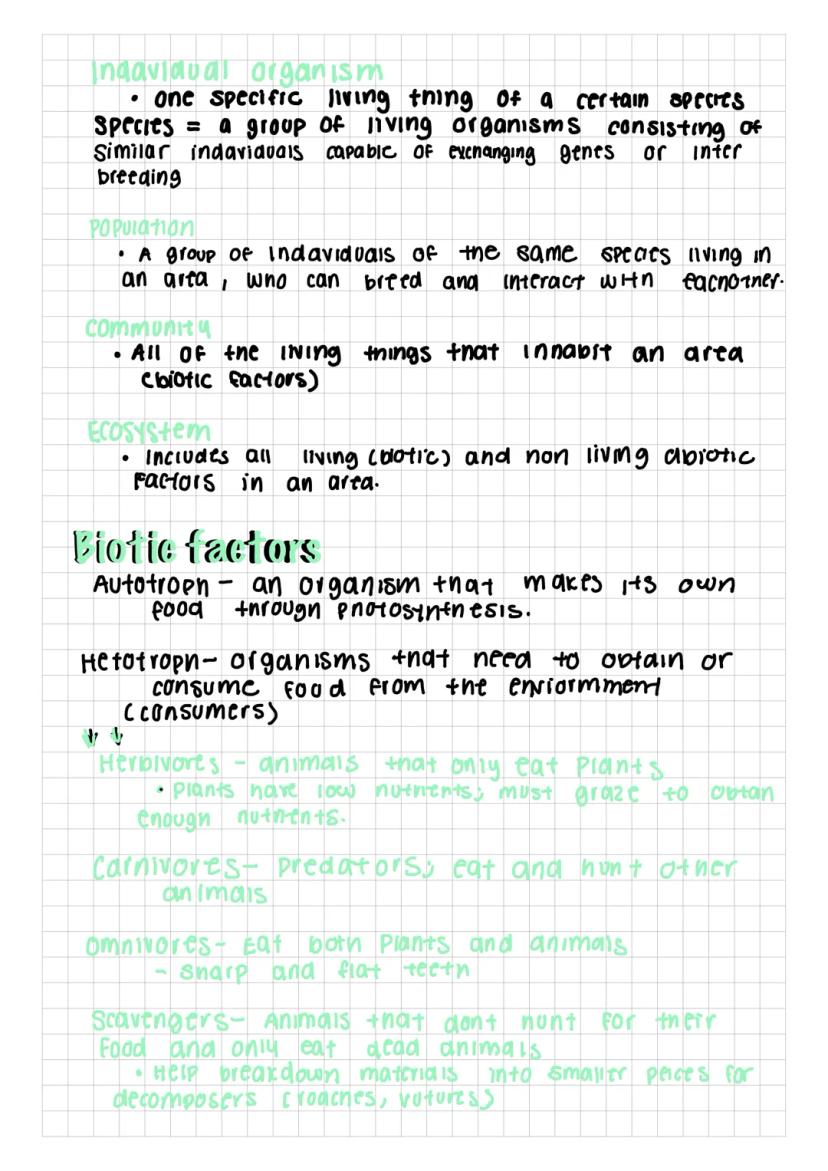 Indavidual organism
• one specific living thing of a certain species
Species = a group of living organisms consisting of
Similar indaviduals capable of exchanging genes or inter
breeding
Population
• A group of Indaviduals of the same species living in
an area, who can breed and interact with eachother.
Community
• All of the living things that inhabit an area
(biotic factors)
Ecosystem
• Includes all living (biotic) and non living abiotic
factors in an area.
Biotic factors
Autotroph - an organism that makes its own
food through photosynthesis.
Hetotroph- organisms that need to obtain or
consume food from the enviornment
(consumers)
Herbivores - animals that only eat Plants
• Plants have low nutrients; must graze to obtan
enough nutrients.
Carnivores- Predators; eat and hunt other
animals
Omnivores- Eat both Plants and animals
- Sharp and flat teeth
Scavengers- Animals that dont hunt for their
food and only eat dead animals
• Help breakdown materials into smaller peices for
decomposers (roaches, vutures)